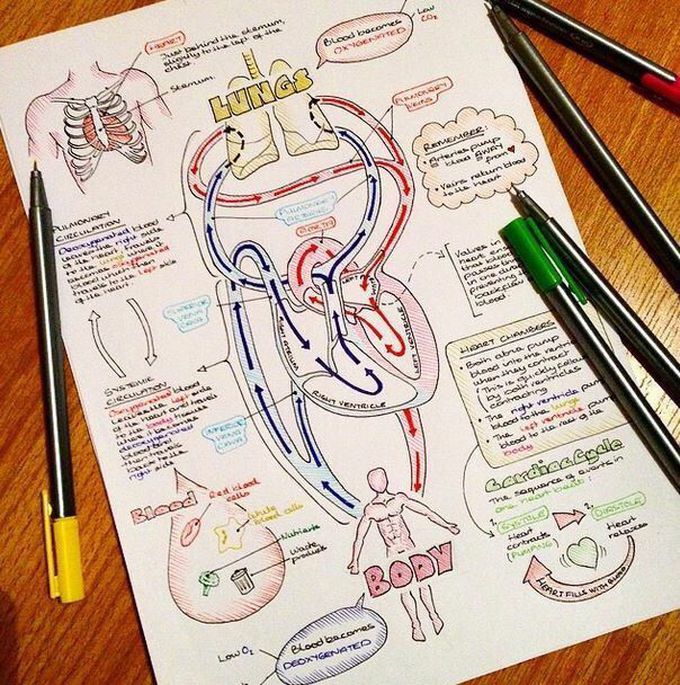 HEART
Just behind the sternum,
slightly to the left of the
chest.
Sternum.
Low
CO₂
Blood becomes
OXYGENATED
LUNGS
PULMONARY
VEINS
REMEMBER:
• Arteries pump
blood AWAY
from ♥
• Veins return blood
to the heart
PULMONARY
CIRCULATION
Deoxygenated blood
leaves the right side
of the heart, travels
to the lungs where it
becomes oxygenated
blood which then
travels to the left side
of the heart.
PULMONARY
ARTERIES
AORTA
SUPERIOR
VENA
CAVA
Valves in
heart
that blood
passes
in one
preventing
backflow
blood.
LEFT
LEFT VENTRICLE
RIGHT ATRIUM
RIGHT VENTRICLE
HEART CHAMBERS
• Both atria pump
blood into the
when they contract
• This is quickly
by both ventricles
contracting
• The right ventricle
blood to the lungs
• The left ventricle
blood to the rest of the
body
SYSTEMIC
CIRCULATION
Oxygenated blood
leaves the left side
of the heart and travels
to the body tissues
where it becomes
deoxygenated
blood and
then travels
back to the
right side
INFERIOR
VENA
CAVA
Cardiac Cycle
The sequence of events in
one heart beat:
1.
SYSTOLE
Heart
contracts
(PUMPING)
2.
DIASTOLE
Heart
relaxes
HEART FILLS WITH BLOOD
Blood
Red blood
cells
White
blood cells
Nutrients
Waste
products
BODY
Low O₂
Blood becomes
DEOXYGENATED